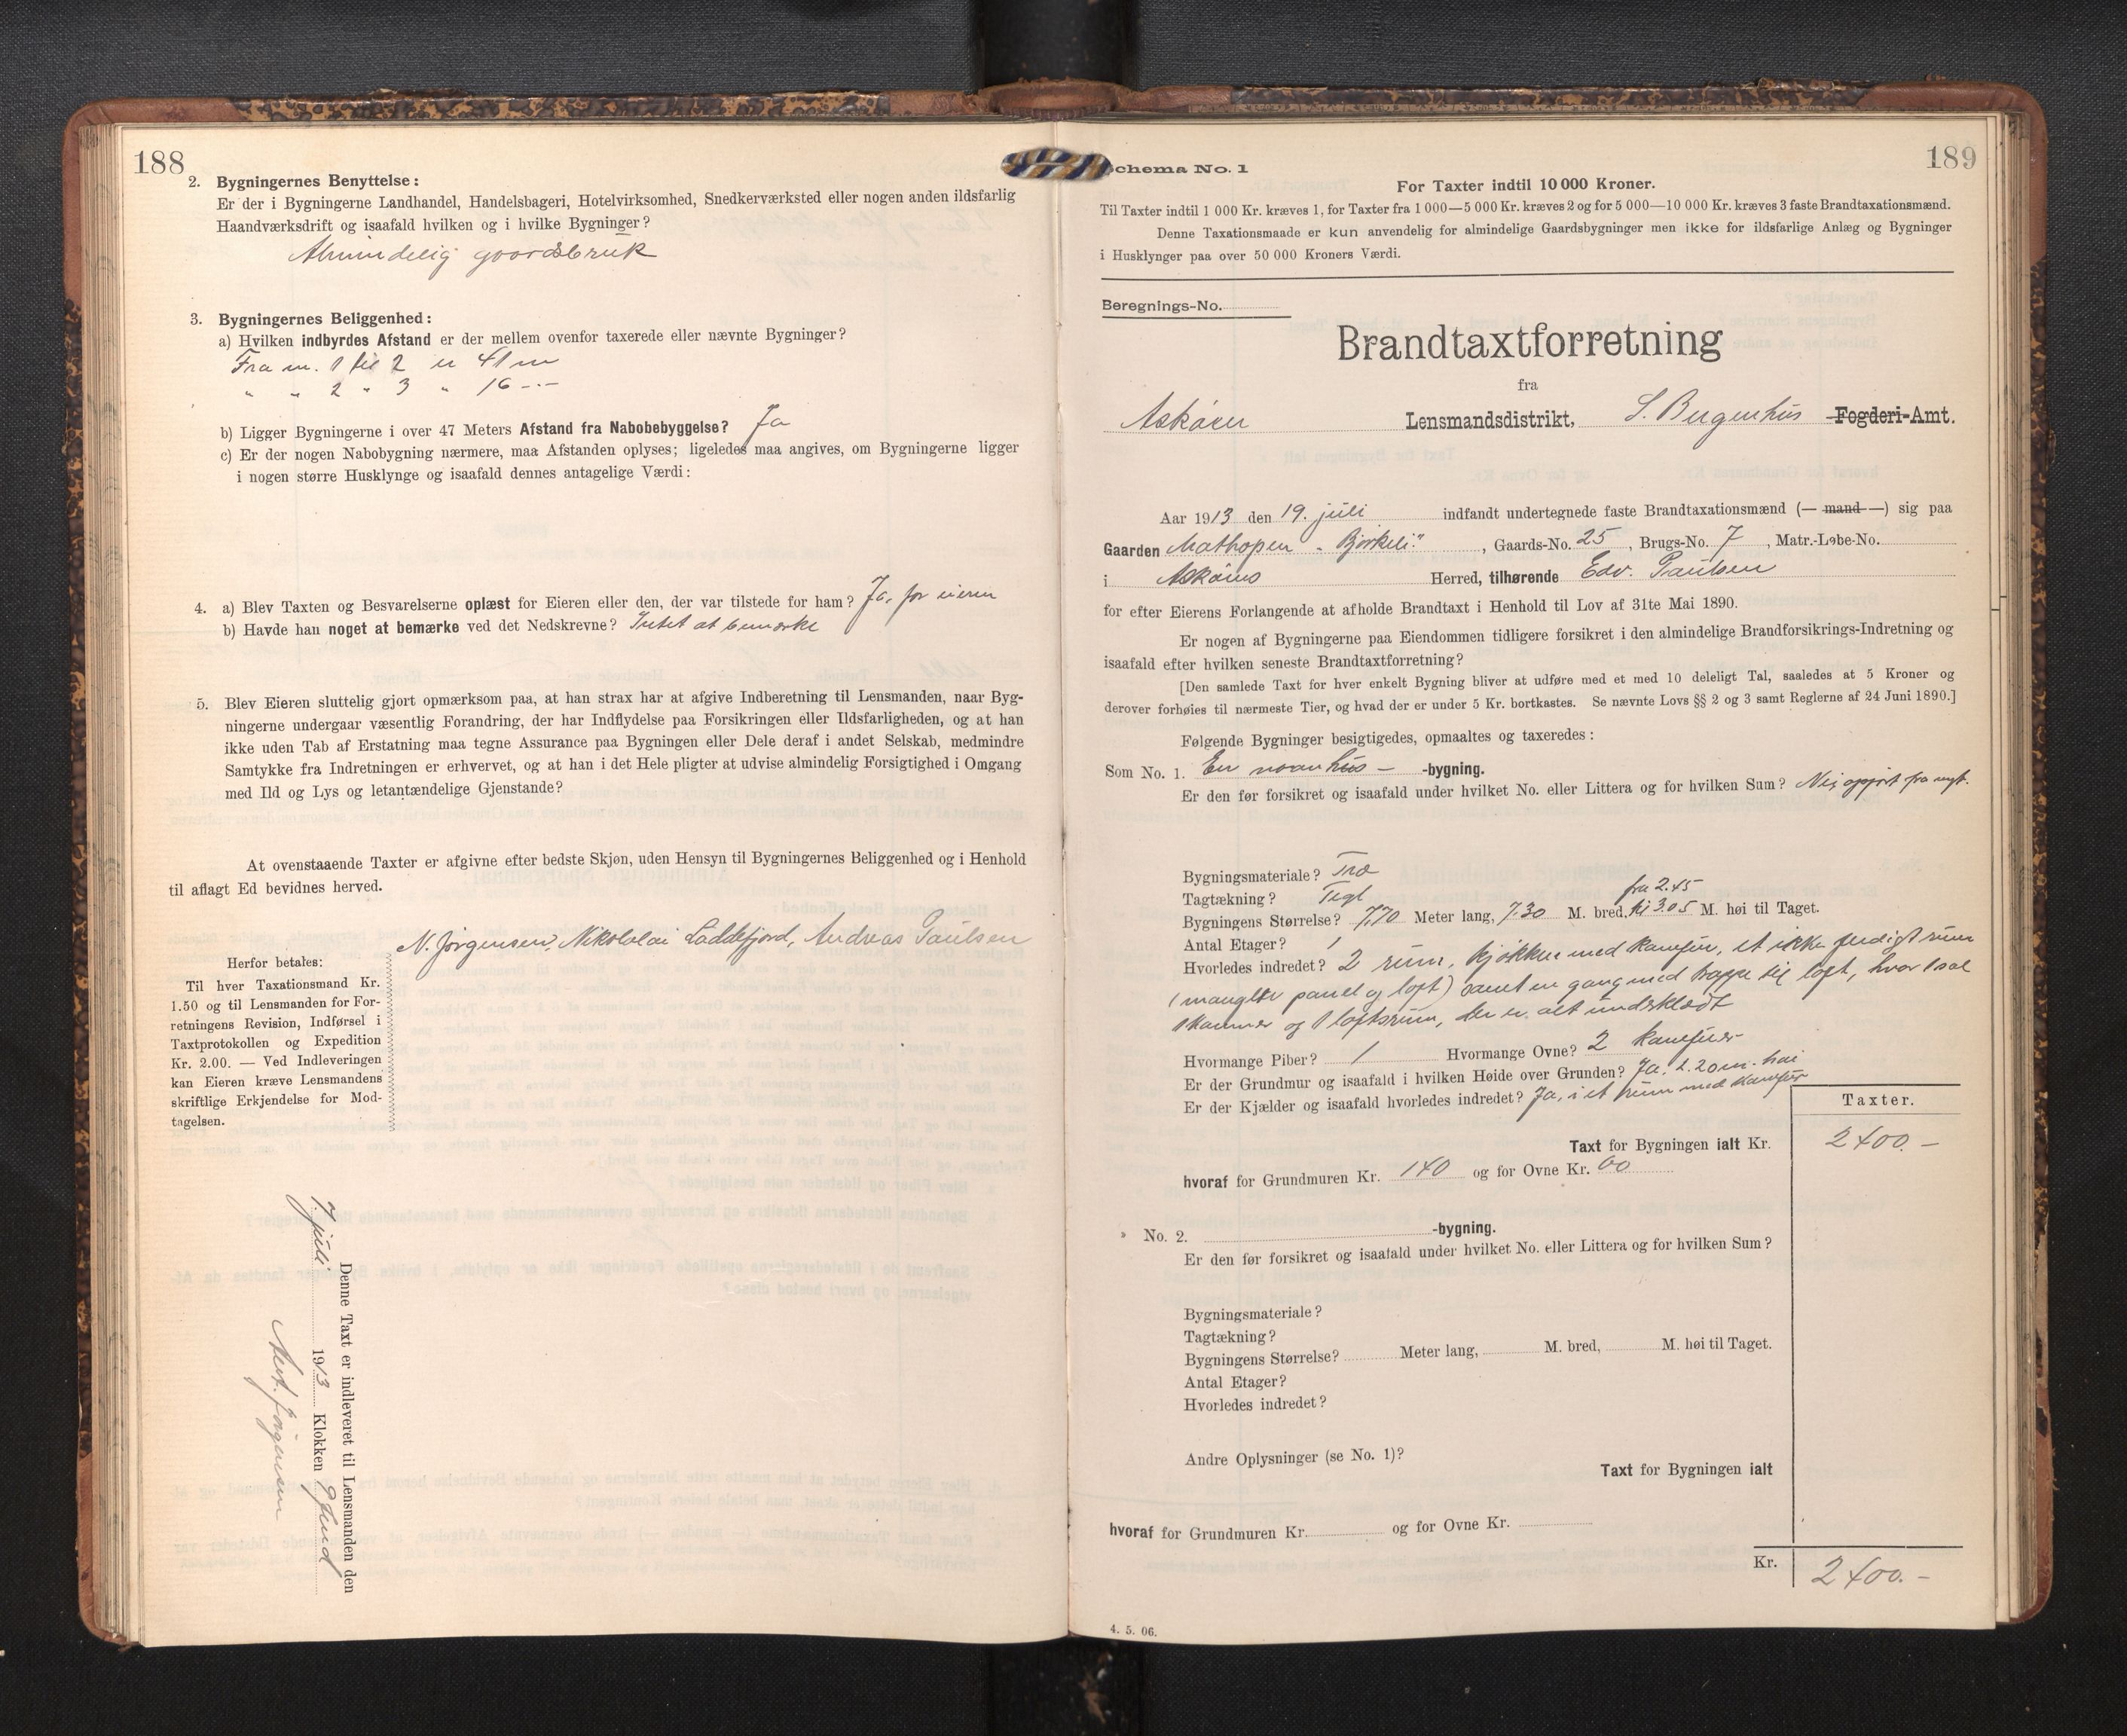 188
2. Bygningernes Benyttelse:
Er der i Bygningerne Landhandel, Handelsbageri, Hotelvirksomhed, Snedkerværksted eller nogen anden ildsfarlig
Haandværksdrift og isaafald hvilken og i hvilke Bygninger?
Almindelig gaardsbruk
3. Bygningernes Beliggenhed:
a) Hvilken indbyrdes Afstand er der mellem ovenfor taxerede eller nævnte Bygninger?
Fra nr. 1 til 2 er 41 m
" " 2 " 3 " 16 -"-
b) Ligger Bygningerne i over 47 Meters Afstand fra Nabobebyggelse? Ja
c) Er der nogen Nabobygning nærmere, maa Afstanden oplyses; ligeledes maa angives, om Bygningerne ligger
i nogen større Husklynge og isaafald dennes antagelige Værdi:
4. a) Blev Taxten og Besvarelserne oplæst for Eieren eller den, der var tilstede for ham? Ja, for eieren
b) Havde han noget at bemærke ved det Nedskrevne? Intet at bemærke
5. Blev Eieren sluttelig gjort opmærksom paa, at han strax har at afgive Indberetning til Lensmanden, naar Byg-
ningerne undergaar væsentlig Forandring, der har Indflydelse paa Forsikringen eller Ildsfarligheden, og at han
ikke uden Tab af Erstatning maa tegne Assurance paa Bygningen eller Dele deraf i andet Selskab, medmindre
Samtykke fra Indretningen er erhvervet, og at han i det Hele pligter at udvise almindelig Forsigtighed i Omgang
med Ild og Lys og letantændelige Gjenstande?
At ovenstaaende Taxter er afgivne efter bedste Skjøn, uden Hensyn til Bygningernes Beliggenhed og i Henhold
til aflagt Ed bevidnes herved.
N. Jørgensen, Nikololai Laddefjord, Andreas Paulsen
Herfor betales:
Til hver Taxationsmand Kr.
1.50 og til Lensmanden for For-
retningens Revision, Indførsel i
Taxtprotokollen og Expedition
Kr. 2.00. — Ved Indleveringen
kan Eieren kræve Lensmandens
skriftlige Erkjendelse for Mod-
tagelsen.
Denne Taxt er indleveret til Lensmanden den
7. juli 1913 Klokken
Jørgensen
189
Schema No. 1
For Taxter indtil 10 000 Kroner.
Til Taxter indtil 1 000 Kr. kræves 1, for Taxter fra 1 000—5 000 Kr. kræves 2 og for 5 000—10 000 Kr. kræves 3 faste Brandtaxationsmænd.
Denne Taxationsmaade er kun anvendelig for almindelige Gaardsbygninger men ikke for ildsfarlige Anlæg og Bygninger
i Husklynger paa over 50 000 Kroners Værdi.
Beregnings-No.
Brandtaxtforretning
fra
Askøen Lensmandsdistrikt, S. Bergenhus Fogderi-Amt.
Aar 1913 den 19. juli indfandt undertegnede faste Brandtaxationsmænd (— mand —) sig paa
Gaarden Mathopen "Bjørkeli" , Gaards-No. 25 , Brugs-No. 7 , Matr.-Løbe-No.
i Askøens Herred, tilhørende Edv. Paulsen
for efter Eierens Forlangende at afholde Brandtaxt i Henhold til Lov af 31te Mai 1890.
Er nogen af Bygningerne paa Eiendommen tidligere forsikret i den almindelige Brandforsikrings-Indretning og
isaafald efter hvilken seneste Brandtaxtforretning?
[Den samlede Taxt for hver enkelt Bygning bliver at udføre med et med 10 deleligt Tal, saaledes at 5 Kroner og
derover forhøies til nærmeste Tier, og hvad der er under 5 Kr. bortkastes. Se nævnte Lovs §§ 2 og 3 samt Reglerne af 24 Juni 1890.]
Følgende Bygninger besigtigedes, opmaaltes og taxeredes:
Som No. 1. En vaanhus - -bygning.
Er den før forsikret og isaafald under hvilket No. eller Littera og for hvilken Sum? Nei, opført fra nyt.
Bygningsmateriale? Træ
Tagtækning? Tegl
Bygningens Størrelse? 7,70 Meter lang, 7.30 M. bred, fra 2.45 til 3.05 M. høi til Taget.
Antal Etager? 1
Hvorledes indredet? 2 rum, kjøkken med kamfur, et ikke ferdigt rum
(mangler panel og loft) samt en gang med trappe til loft, hvor 1 sal
1 kammer og 1 loftsrum, der er alt underklædt
Hvormange Piber? 1 Hvormange Ovne? 2 kamfurer
Er der Grundmur og isaafald i hvilken Høide over Grunden? Ja. 1.20 m. høi
Er der Kjælder og isaafald hvorledes indredet? Ja, i et rum med kamfur
Taxter.
Taxt for Bygningen ialt Kr. 2400.-
hvoraf for Grundmuren Kr. 140 og for Ovne Kr. 60
" No. 2. -bygning.
Er den før forsikret og isaafald under hvilket No. eller Littera og for hvilken Sum?
Bygningsmateriale?
Tagtækning?
Bygningens Størrelse? Meter lang, M. bred, M. høi til Taget.
Antal Etager?
Hvorledes indredet?
Andre Oplysninger (se No. 1)?
Taxt for Bygningen ialt
hvoraf for Grundmuren Kr. og for Ovne Kr.
Kr. 2400.-
4. 5. 06.